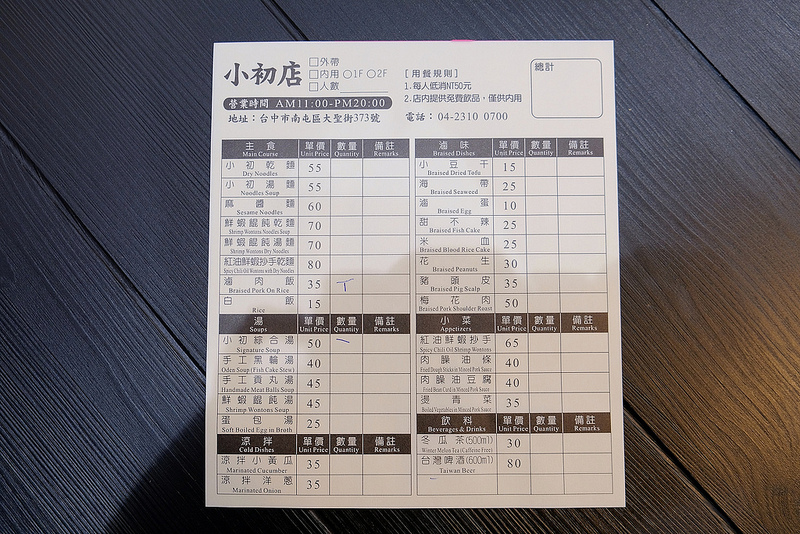 小初店
□外帶
□內用 ○1F ○2F
□人數
[用餐規則]
1.每人低消NT50元
2.店內提供免費飲品，僅供內用
總計
營業時間 AM11:00-PM20:00
地址：台中市南屯區大聖街373號
電話：04-2310 0700
主食 單價 數量 備註
Main Course Unit Price Quantity Remarks
小初乾麵 55
Dry Noodles
小初湯麵 55
Noodles Soup
麻醬麵 60
Sesame Noodles
鮮蝦餛飩乾麵 70
Shrimp Wontons Noodles Soup
鮮蝦餛飩湯麵 70
Shrimp Wontons Dry Noodles
紅油鮮蝦抄手乾麵 80
Spicy Chili Oil Wontons with Dry Noodles
滷肉飯 35
Braised Pork On Rice
白飯 15
Rice
湯 單價 數量 備註
Soups Unit Price Quantity Remarks
小初綜合湯 50
Signature Soup
手工黑輪湯 40
Oden Soup (Fish Cake Stew)
手工貢丸湯 45
Handmade Meat Balls Soup
鮮蝦餛飩湯 45
Shrimp Wontons Soup
蛋包湯 25
Soft Boiled Egg in Broth
涼拌 單價 數量 備註
Cold Dishes Unit Price Quantity Remarks
涼拌小黃瓜 35
Marinated Cucumber
涼拌洋蔥 35
Marinated Onion
滷味 單價 數量 備註
Braised Dishes Unit Price Quantity Remarks
小豆干 15
Braised Dried Tofu
海帶 25
Braised Seaweed
滷蛋 10
Braised Egg
甜不辣 25
Braised Fish Cake
米血 25
Braised Blood Rice Cake
花生 30
Braised Peanuts
豬頭皮 35
Braised Pig Scalp
梅花肉 50
Braised Pork Shoulder Roast
小菜 單價 數量 備註
Appetizers Unit Price Quantity Remarks
紅油鮮蝦抄手 65
Spicy Chili Oil Shrimp Wontons
肉臊油條 40
Fried Dough Sticks in Minced Pork Sauce
肉臊油豆腐 40
Fried Bean Curd in Minced Pork Sauce
燙青菜 35
Boiled Vegetables in Minced Pork Sauce
飲料 單價 數量 備註
Beverages & Drinks Unit Price Quantity Remarks
冬瓜茶(500ml) 30
Winter Melon Tea (Caffeine Free)
台灣啤酒(600ml) 80
Taiwan Beer